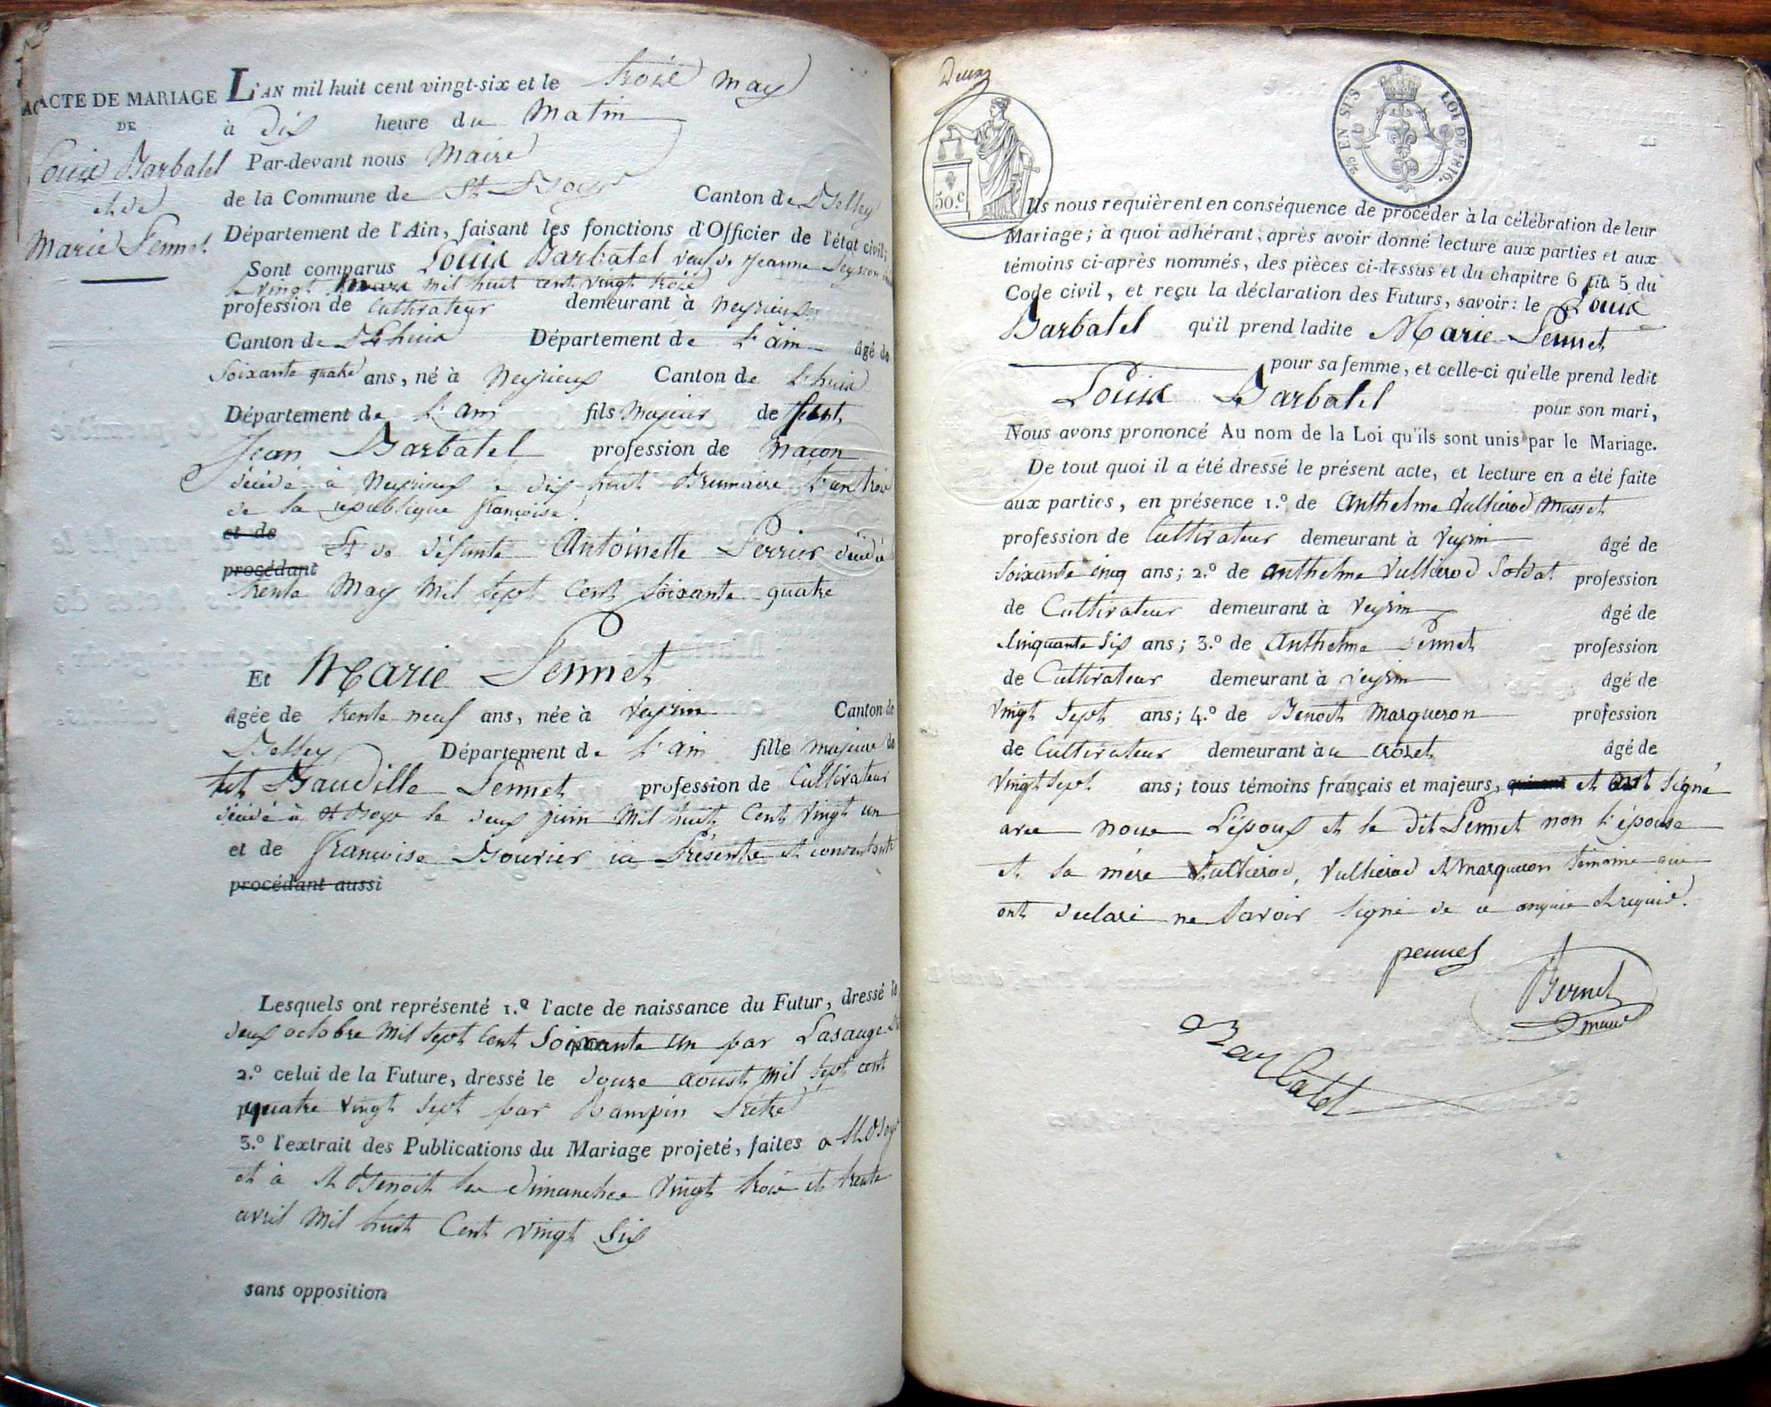 ACTE DE MARIAGE
DE
Louis Barbatel
et de
Marie Pennet
L'AN mil huit cent vingt-six et le trois may
à dix heure du matin
Par-devant nous Maire
de la Commune de St Bois Canton de Belley
Département de l'Ain, faisant les fonctions d'Officier de l'état civil;
Sont comparus Louis Barbatel veuf de Jeanne Peysson
le vingt mars mil huit cent vingt trois
profession de Cultivateur demeurant à Neyrieux
Canton de Lhuis Département de L'ain Agé de
Soixante quatre ans, né à Neyrieux Canton de Lhuis
Département de L'ain fils Majeur de feu
Jean Barbatel profession de Maçon
décédé à Neyrieux le dix huit Brumaire L'an trois
de la republique françoise.
et de Et de défunte Antoinette Perrier décédée
procédant
trente May Mil Sept Cent Soixante quatre
Et Marie Pennet
Agée de trente neuf ans, née à Veyrin Canton de
Belley Département de L'ain fille majeure de
Baudille Pennet profession de Cultivateur
décédé à St Bois le deux juin Mil huit Cent Vingt un
et de françoise Bouvier ici Présente et consentante
procédant aussi
Lesquels ont représenté 1.º l'acte de naissance du Futur, dressé le
deux octobre Mil Sept Cent Soixante un par Lasauge
2.º celui de la Future, dressé le douze aoust Mil Sept cent
quatre Vingt Sept par Rampin Prêtre
3.º l'extrait des Publications du Mariage projeté, faites à St Bois
et à St Benoit les dimanches Vingt trois et trente
avril Mil huit Cent Vingt Six
sans opposition
50.c
25 EN SUS LOI DE 1816.
Ils nous requièrent en conséquence de procéder à la célébration de leur
Mariage; à quoi adhérant, après avoir donné lecture aux parties et aux
témoins ci-après nommés, des pièces ci-dessus et du chapitre 6 tit. 5 du
Code civil, et reçu la déclaration des Futurs, savoir: le Louis
Barbatel qu'il prend ladite Marie Pennet
pour sa femme, et celle-ci qu'elle prend ledit
Louis Barbatel pour son mari,
Nous avons prononcé Au nom de la Loi qu'ils sont unis par le Mariage.
De tout quoi il a été dressé le présent acte, et lecture en a été faite
aux parties, en présence 1.º de Anthelme Vullierod Musset
profession de Cultivateur demeurant à Veyrin Agé de
Soixante cinq ans; 2.º de Anthelme Vullierod Soldat profession
de Cultivateur demeurant à Veyrin Agé de
Cinquante Six ans; 3.º de Anthelme Pennet profession
de Cultivateur demeurant à Veyrin Agé de
Vingt Sept ans; 4.º de Benoit Marqueron profession
de Cultivateur demeurant à au Crozet Agé de
Vingt Sept ans; tous témoins français et majeurs, et ont Signé
avec nous L'époux et le dit Pennet non l'épouse
et la mère Vullierod, Vullierod et Marqueron témoins qui
ont déclaré ne Savoir Signé de ce enquis et requis.
pennet
Bernet
maire
Barbatel